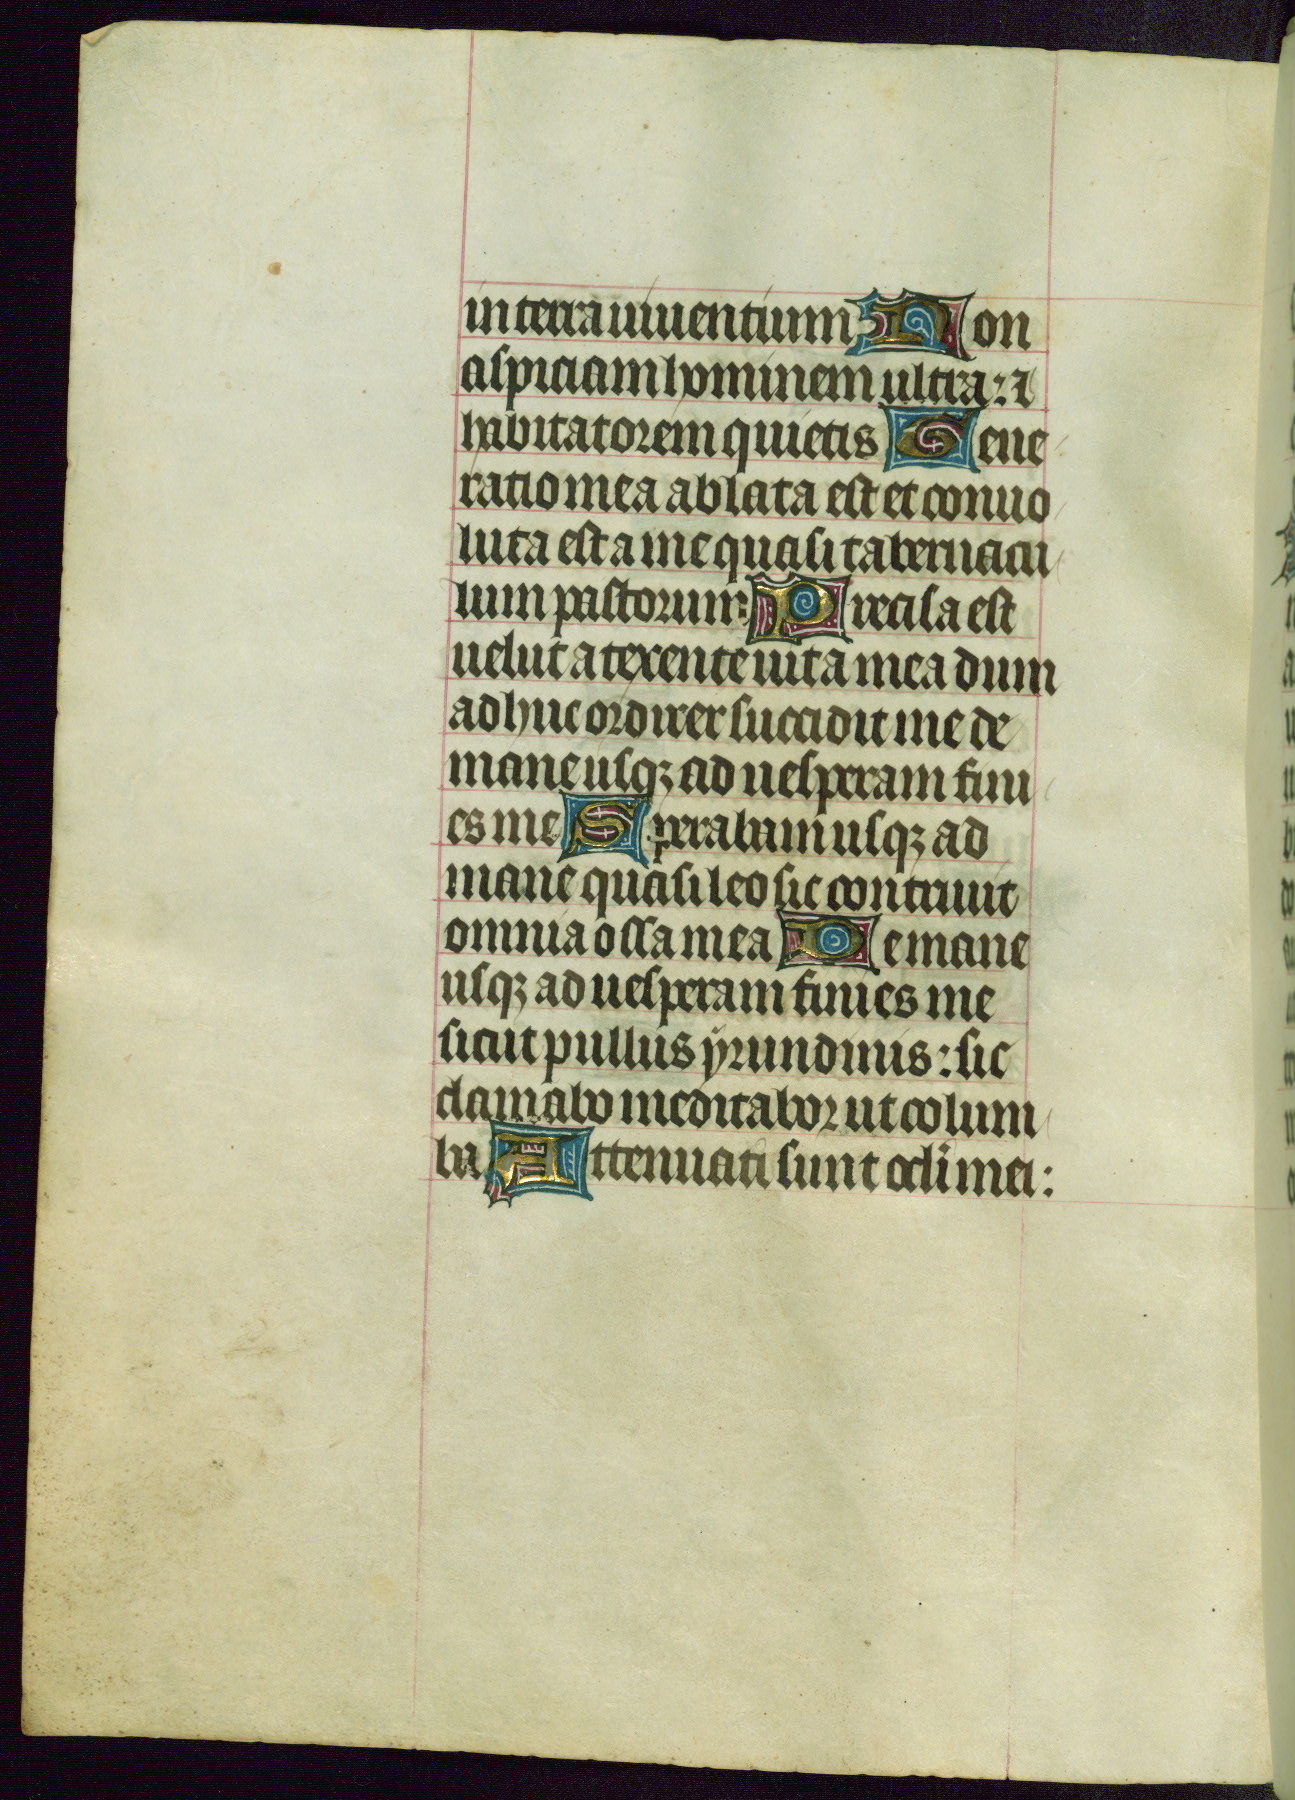 in terra uiuentium Non
aspiciam hominem ultra: ⁊
habitatorem quietis Gene
ratio mea ablata est et conuo
luta est a me quasi tabernacu
lum pastorum: Precisa est
uelut a texente uita mea dum
adhuc ordirer succidit me de
mane usqꝫ ad uesperam fini
es me Sperabam usqꝫ ad
mane quasi leo sic contriuit
omnia ossa mea De mane
usqꝫ ad uesperam finies me
sicut pullus yrundinis: sic
clamabo meditabor ut colum
ba Attenuati sunt ocl̄i mei: